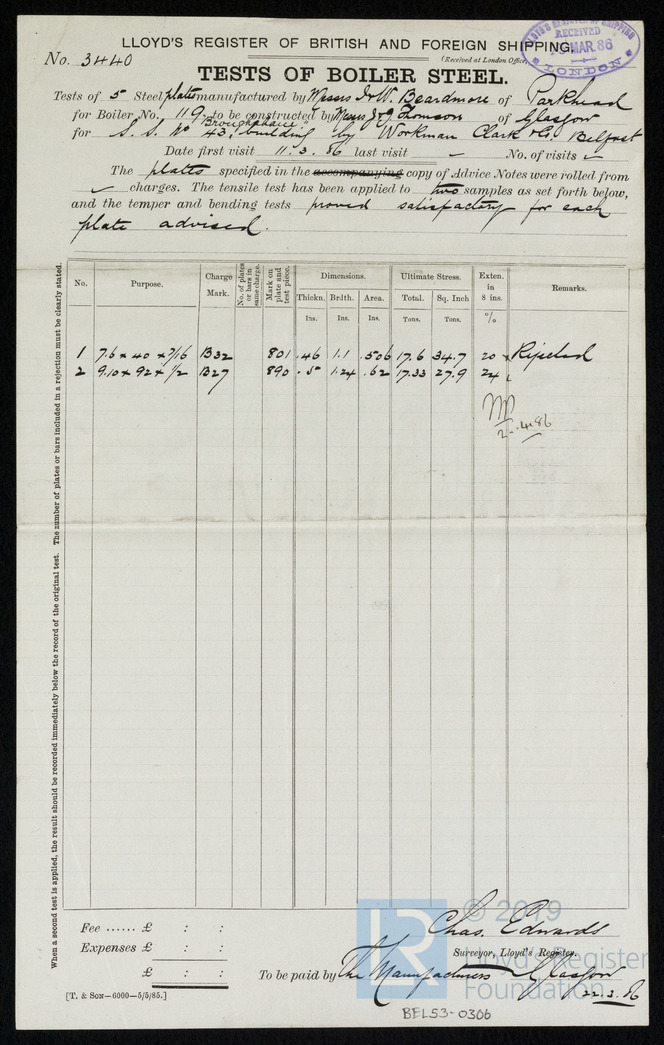 LLOYD'S REGISTER OF BRITISH AND FOREIGN SHIPPING.
LLOYD'S REGISTER OF SHIPPING
RECEIVED
MAR.86
LONDON
No. 3440
(Received at London Office
TESTS OF BOILER STEEL.
Tests of 5 Steel plates manufactured by Messrs W. Beardmore of Parkhead
for Boiler No. 119, to be constructed by Messrs J & G Thomson of Glasgow
for S.S. No 43, building by Workman Clark & Co. Belfast
Date first visit 11.3.86 last visit No. of visits
The plates specified in the accompanying copy of Advice Notes were rolled from
charges. The tensile test has been applied to two samples as set forth below,
and the temper and bending tests proved satisfactory for each
plate advised.
When a second test is applied, the result should be recorded immediately below the record of the original test. The number of plates or bars included in a rejection must be clearly stated.
No. Purpose. Charge Mark. No. of plates or bars in same charge. Mark on plate and test piece. Dimensions. Ultimate Stress. Exten. in 8 ins. Remarks.
Thickn. Brdth. Area. Total. Sq. Inch
Ins. Ins. Ins. Tons. Tons. %
1 7.6 x 40 x 7/16 B32 801 .46 1.1 .506 17.6 34.7 20 Rejected
2 9.10 x 92 x 1/2 B27 890 .5 1.24 .62 17.33 27.9 24
.4.86
Fee ...... £ : :
Expenses £ : :
£ : :
Chas. Edwards
Surveyor, Lloyd's Register.
To be paid by The Manufacturers Glasgow
22.3.86
[T. & Son—6000—5/5/85.]
LR
© 2019
Lloyd's Register
Foundation
BEL53-0306